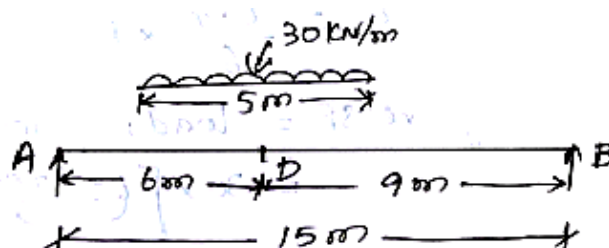 30KN/m
5m
A B
6m D 9m
15m